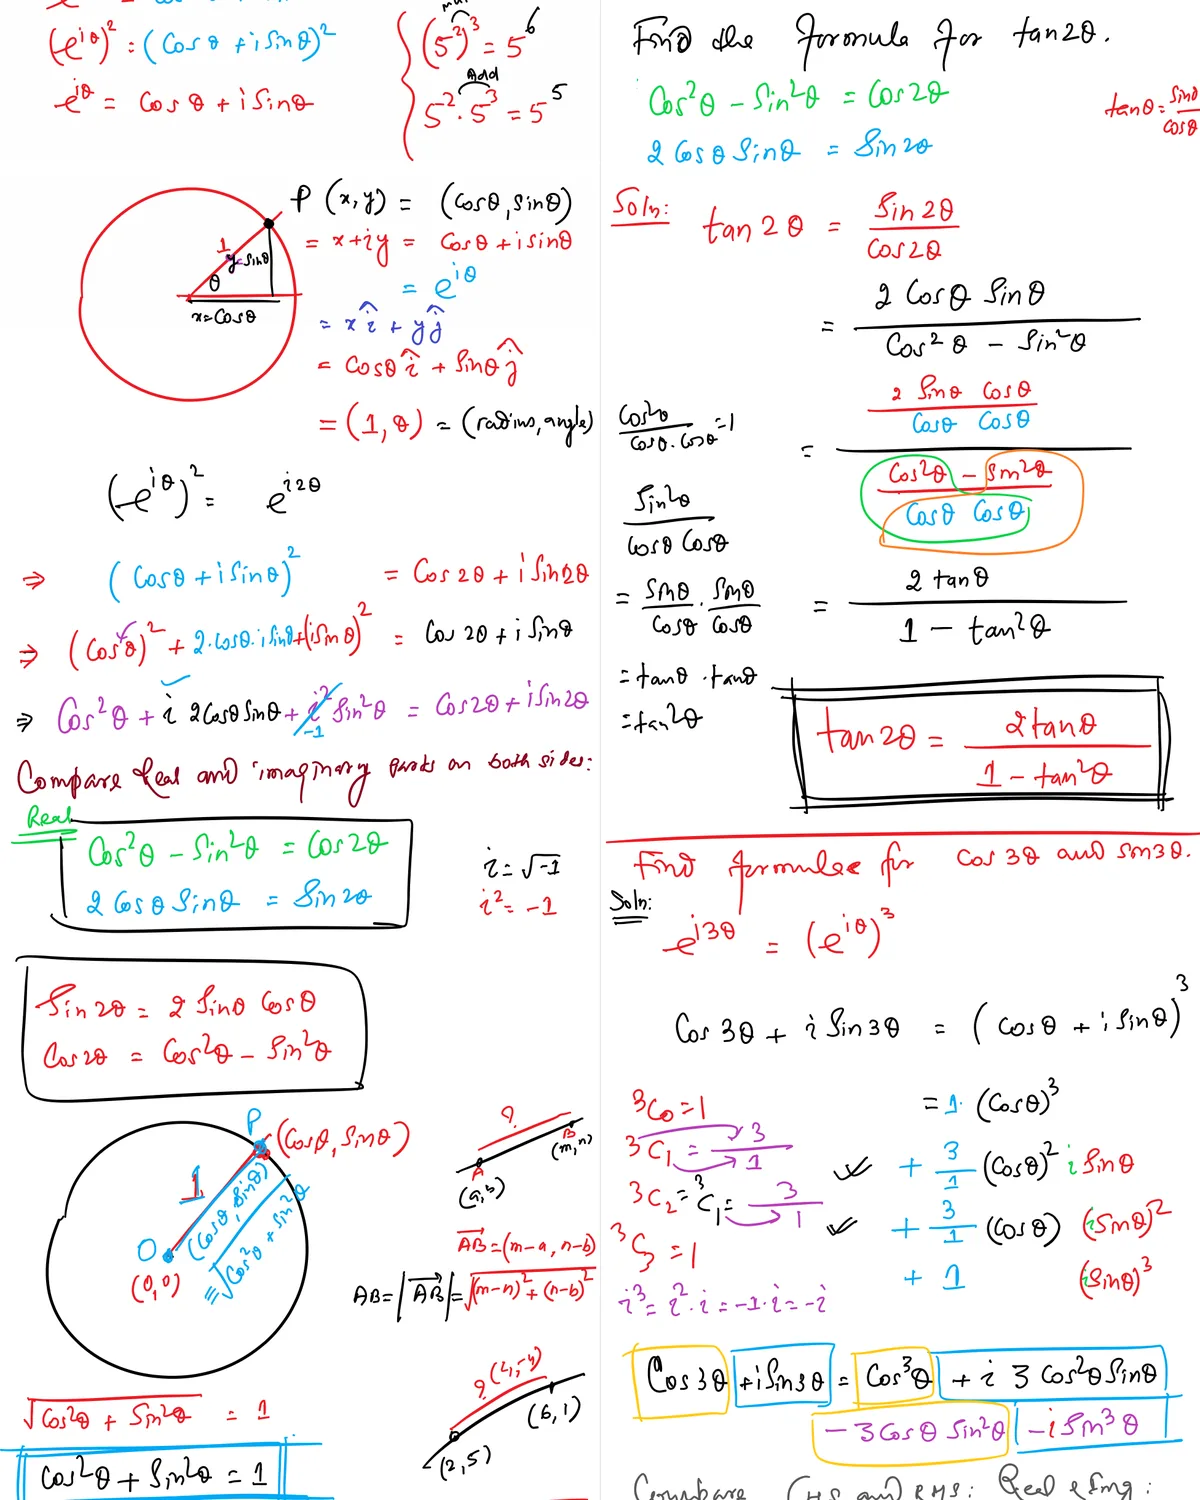 (e^{iθ})^2 : (Cos θ + i Sin θ)^2
e^{iθ} = Cos θ + i Sin θ
(5^2)^3 = 5^6
Add
5^2 · 5^3 = 5^5
P (x, y) = (Cosθ, Sinθ)
= x+iy = Cosθ + i sinθ
= e^{iθ}
= x î + y ĵ
= Cosθ î + Sinθ ĵ
= (1, θ) = (radius, angle)
1
y=Sinθ
θ
x=Cosθ
(e^{iθ})^2 = e^{i2θ}
⇒ (Cosθ + i Sinθ)^2 = Cos 2θ + i Sin 2θ
⇒ (Cosθ)^2 + 2·Cosθ·i Sinθ + (i Sinθ)^2 = Cos 2θ + i Sin θ
⇒ Cos^2θ + i 2 Cosθ Sinθ + i^2 Sin^2θ = Cos 2θ + i Sin 2θ
-1
Compare Real and imaginary parts on both sides:
Real
Cos^2θ – Sin^2θ = Cos 2θ
2 Cos θ Sin θ = Sin 2θ
i = √-1
i^2 = -1
Sin 2θ = 2 Sinθ Cosθ
Cos 2θ = Cos^2θ – Sin^2θ
P (Cosθ, Sinθ)
1
(Cosθ, Sinθ)
= √Cos^2θ + Sin^2θ
O
(0,0)
?
A
B
(a,b)
(m,n)
AB = (m-a, n-b)
AB = |AB| = √(m-n)^2 + (n-b)^2
? (4,-4)
(6,1)
(2,5)
√Cos^2θ + Sin^2θ = 1
Cos^2θ + Sin^2θ = 1
Find the formula for tan2θ.
Cos^2θ – Sin^2θ = Cos 2θ
2 Cos θ Sin θ = Sin 2θ
tanθ = Sinθ/Cosθ
Soln: tan 2θ = Sin 2θ/Cos 2θ
= 2 Cosθ Sinθ/Cos^2 θ – Sin^2θ
= 2 Sinθ Cosθ/Cosθ Cosθ
Cos^2θ – Sin^2θ/Cosθ Cosθ
= 2 tanθ/1 – tan^2θ
Cos^2θ/Cosθ·Cosθ = 1
Sin^2θ/Cosθ Cosθ
= Sinθ/Cosθ · Sinθ/Cosθ
= tanθ · tanθ
= tan^2θ
tan 2θ = 2 tanθ/1 – tan^2θ
Find formulae for Cos 3θ and Sin 3θ.
Soln:
e^{i3θ} = (e^{iθ})^3
Cos 3θ + i Sin 3θ = (Cosθ + i Sinθ)^3
= 1· (Cosθ)^3
+ 3/1 (Cosθ)^2 i Sinθ
+ 3/1 (Cosθ) (i Sinθ)^2
+ 1 (i Sinθ)^3
3C0 = 1
3C1 = 3/1
3C2 = 3C1 = 3/1
3C3 = 1
i^3 = i^2·i = -1·i = -i
Cos 3θ + i Sin 3θ = Cos^3θ + i 3 Cos^2θ Sinθ
– 3 Cosθ Sin^2θ – i Sin^3θ
Compare LHS and RHS: Real & Img: